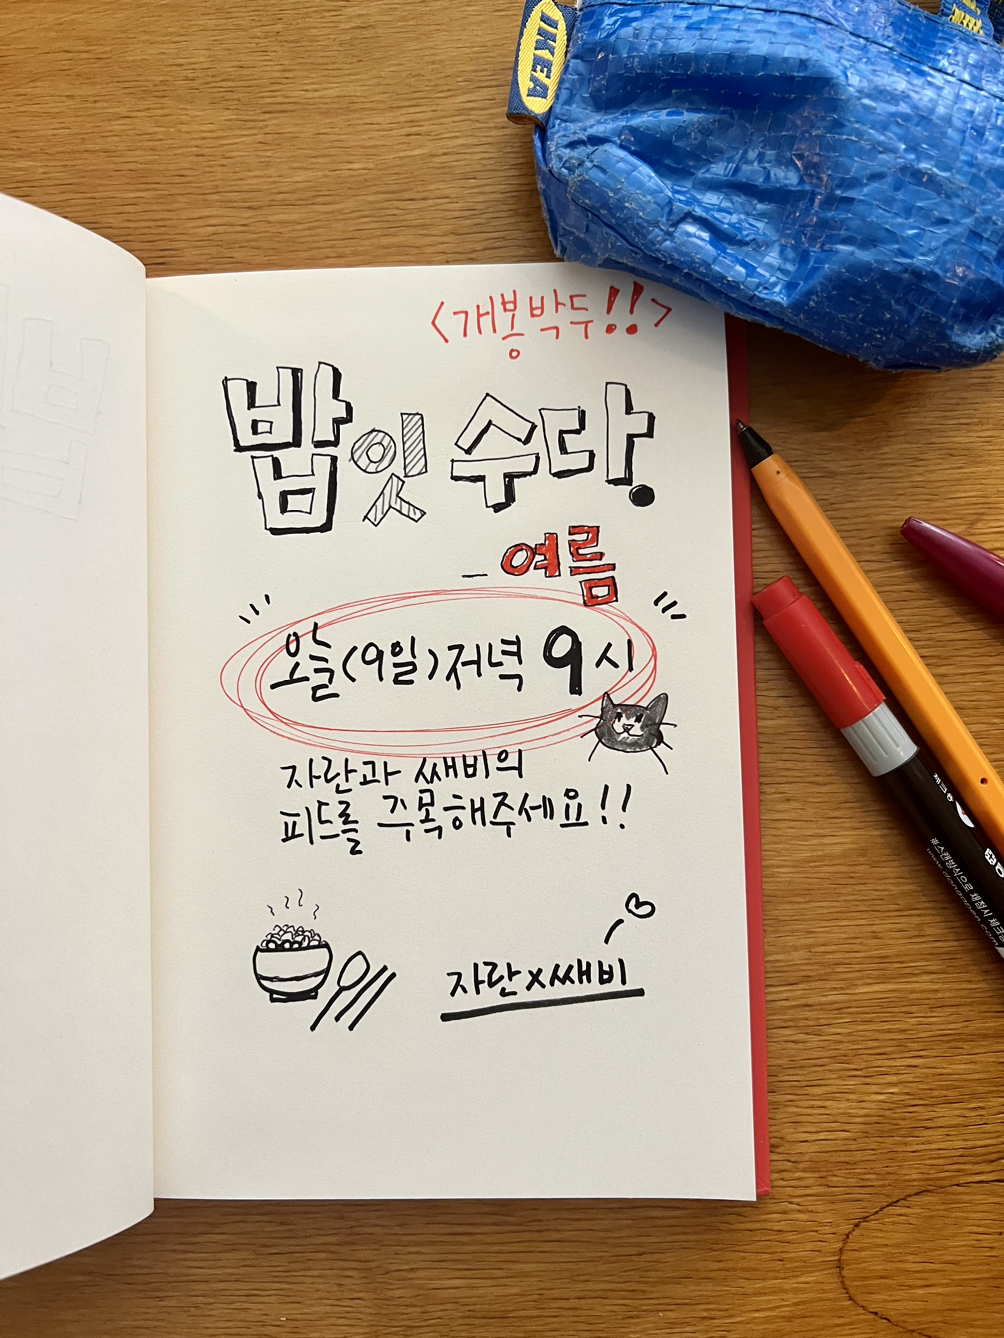 IKEA
<개봉박두!!>
밤잇수다.
_여름
오늘(9일)저녁 9시
자란과 쌔비의
피드를 주목해주세요!!
자란x쌔비